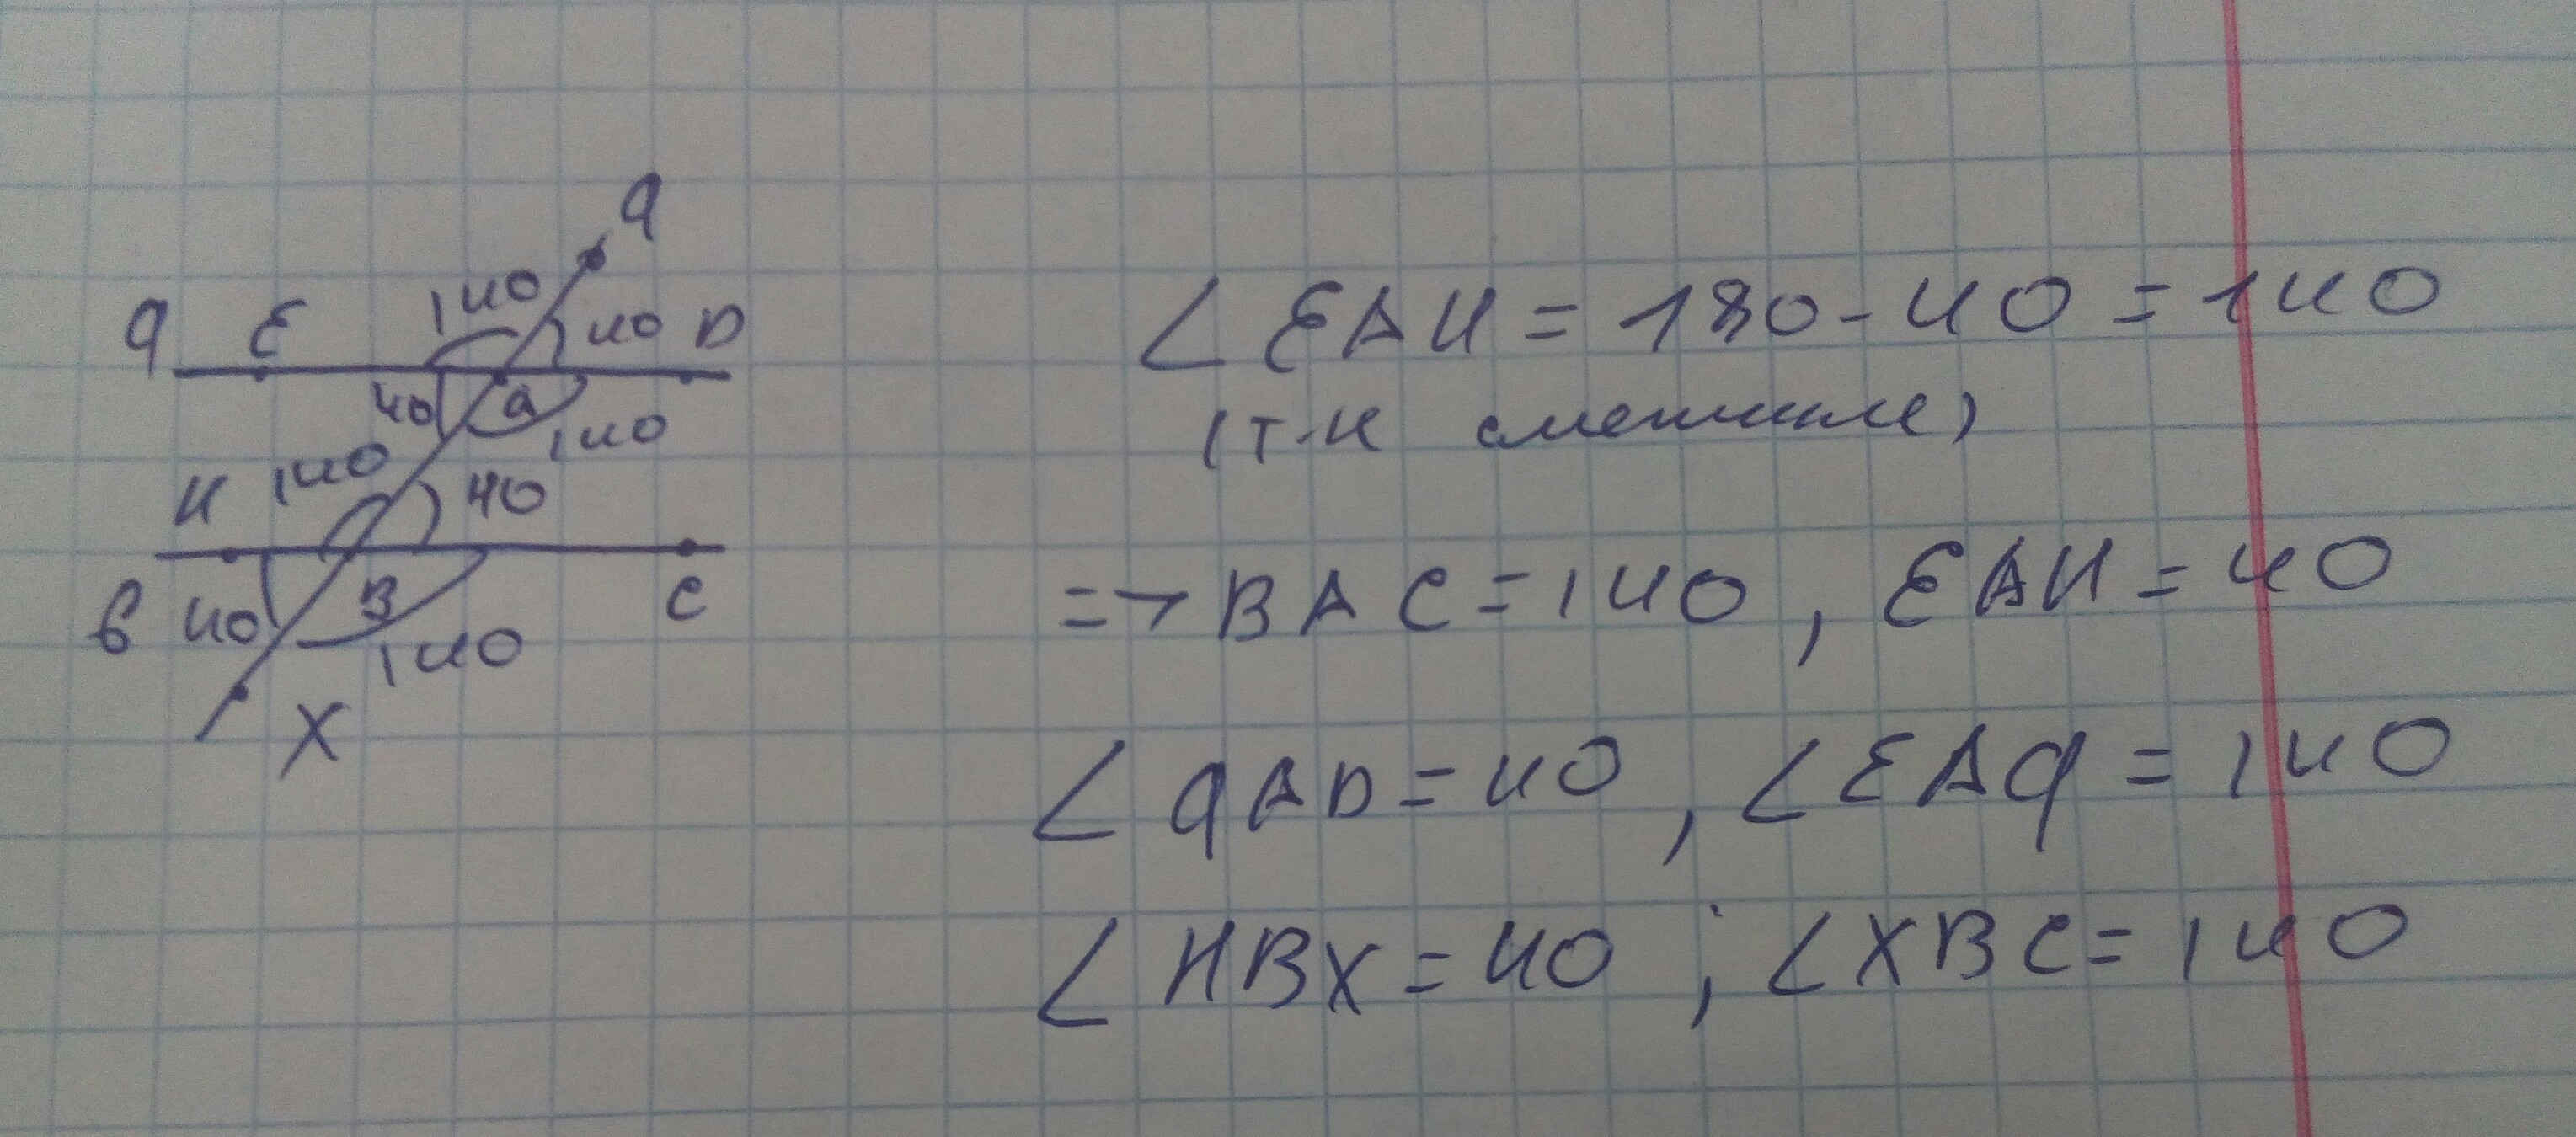 q
140
q E 40 D
40 a 140
H 140 40
в 40 B 140 C
X
∠EAH = 180 - 40 = 140
(т.к смежные)
=> BAC = 140, EAH = 40
∠qAD = 40, ∠EAq = 140
∠HBX = 40; ∠XBC = 140